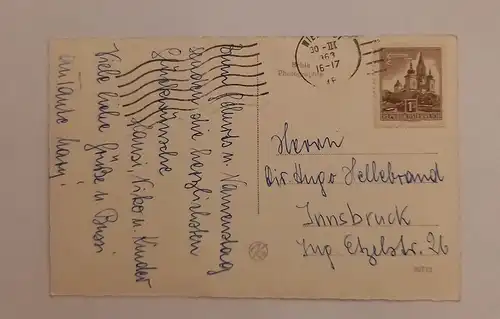 Zum Geburts u. Namenstag
senden die herzlichsten
Glückwünsche
Hansi, Niko u. Kinder
Viele liebe Grüße u. Bussi
Tante Mary!
WIEN
30.-III
16-17
Echte
Photographie
REPUBLIK ÖSTERREICH
Herrn
Dir Hugo Hellebrand
Innsbruck
Ing Etzelstr. 26